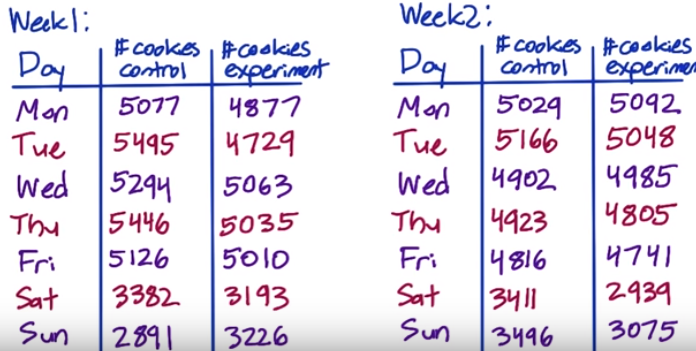 Week1:
Day #cookies control #cookies experiment
Mon 5077 4877
Tue 5495 4729
Wed 5294 5063
Thu 5446 5035
Fri 5126 5010
Sat 3382 3193
Sun 2891 3226
Week2:
Day #cookies control #cookies experimen
Mon 5029 5092
Tue 5166 5048
Wed 4902 4985
Thu 4923 4805
Fri 4816 4741
Sat 3411 2939
Sun 3496 3075